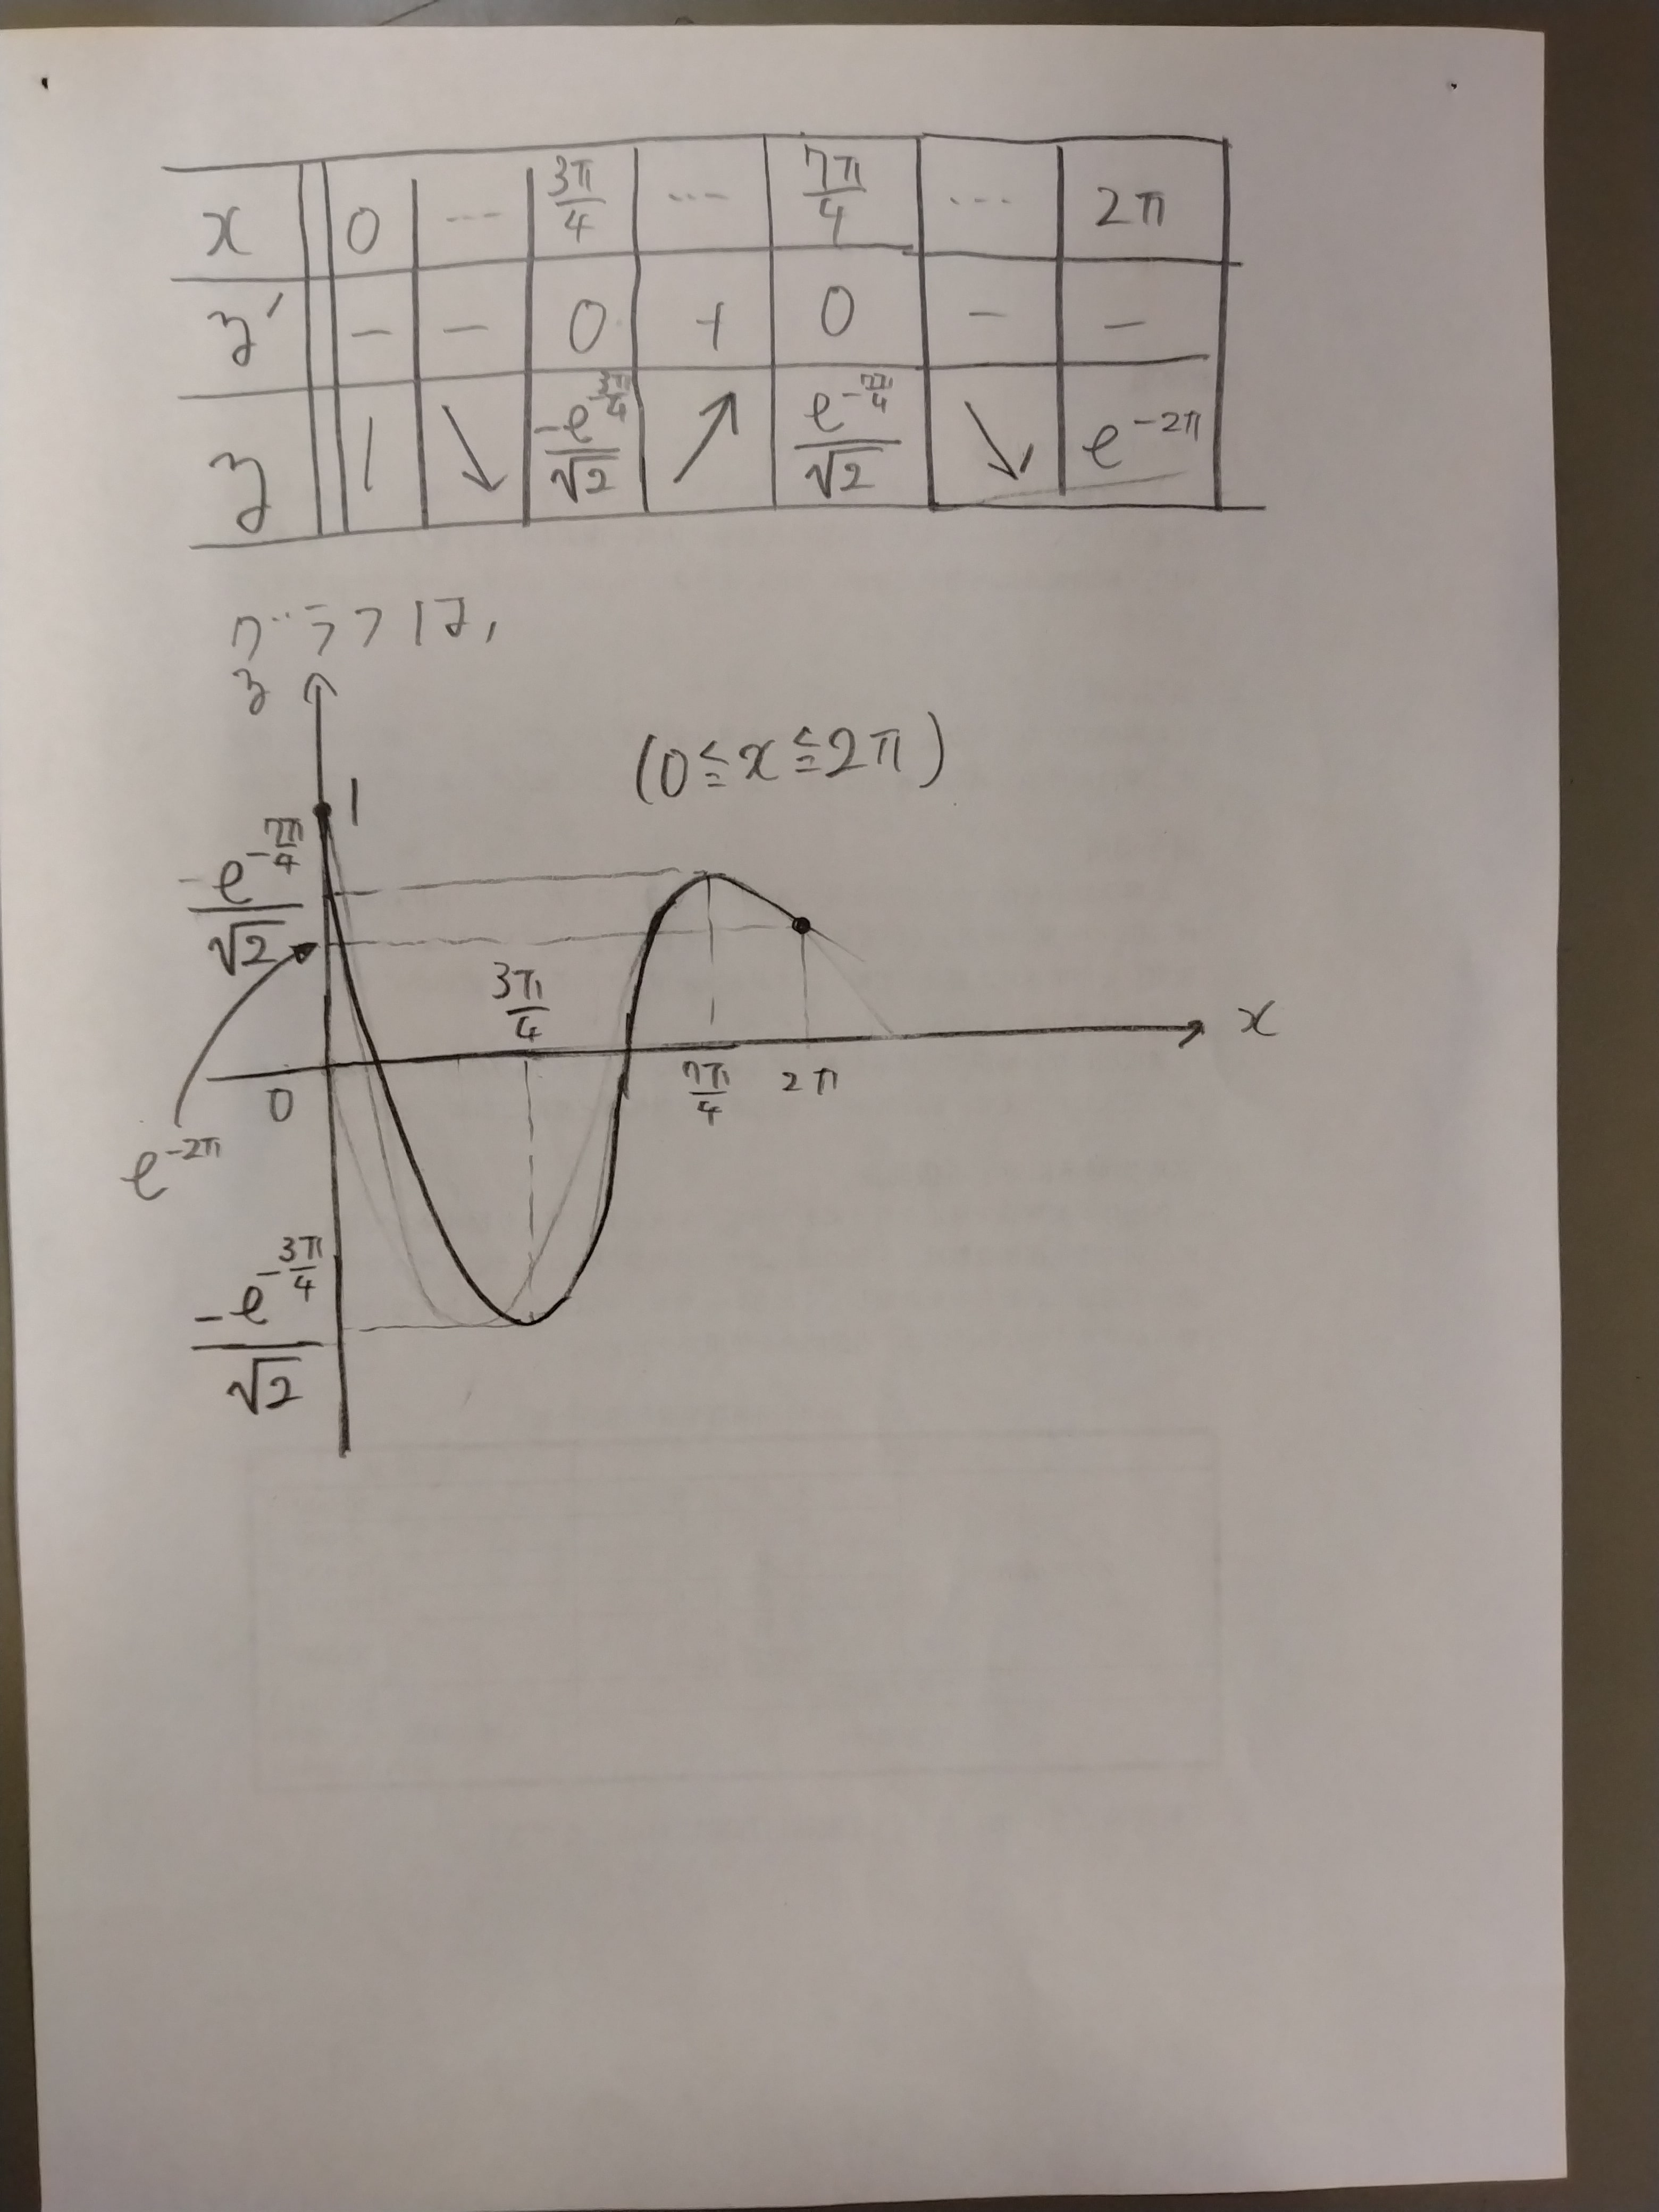 x 0 … 3π/4 … 7π/4 … 2π
y′ − − 0 + 0 − −
y 1 ↘ -e^-3π/4/√2 ↗ e^-7π/4/√2 ↘ e^-2π
グラフは,
y
(0≦x≦2π)
1
-e^-7π/4/√2
3π/4
x
0
7π/4 2π
e^-2π
-e^-3π/4/√2